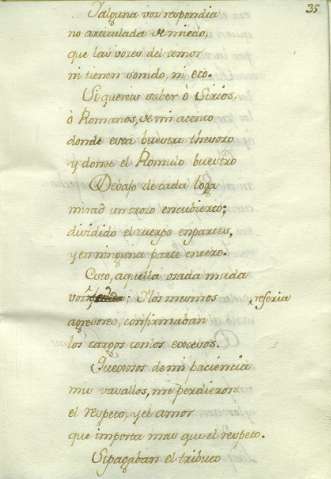 35
Si alguna voz respondia
no articulada de miedo,
que las voces del amor
ni tienen sonido, ni eco.
Si quereis saber ò Sirios,
ò Romanos, de mi acento
donde està buestro thesoro
y donde el Romulo buestro
Debajo de cada losa
mirad un trozo encubierto;
dividido el cuerpo en partes,
y en ninguna parte entero.
Esto, aquella osada muda
voz referia: I los mismos
agresores, confirmaban
los cargos con los excesos.
Quexosos de mi paciencia
mis vasallos, me perdieron
el respeto, y el amor
que importa mas que el respeto.
Si pagaban el tributo